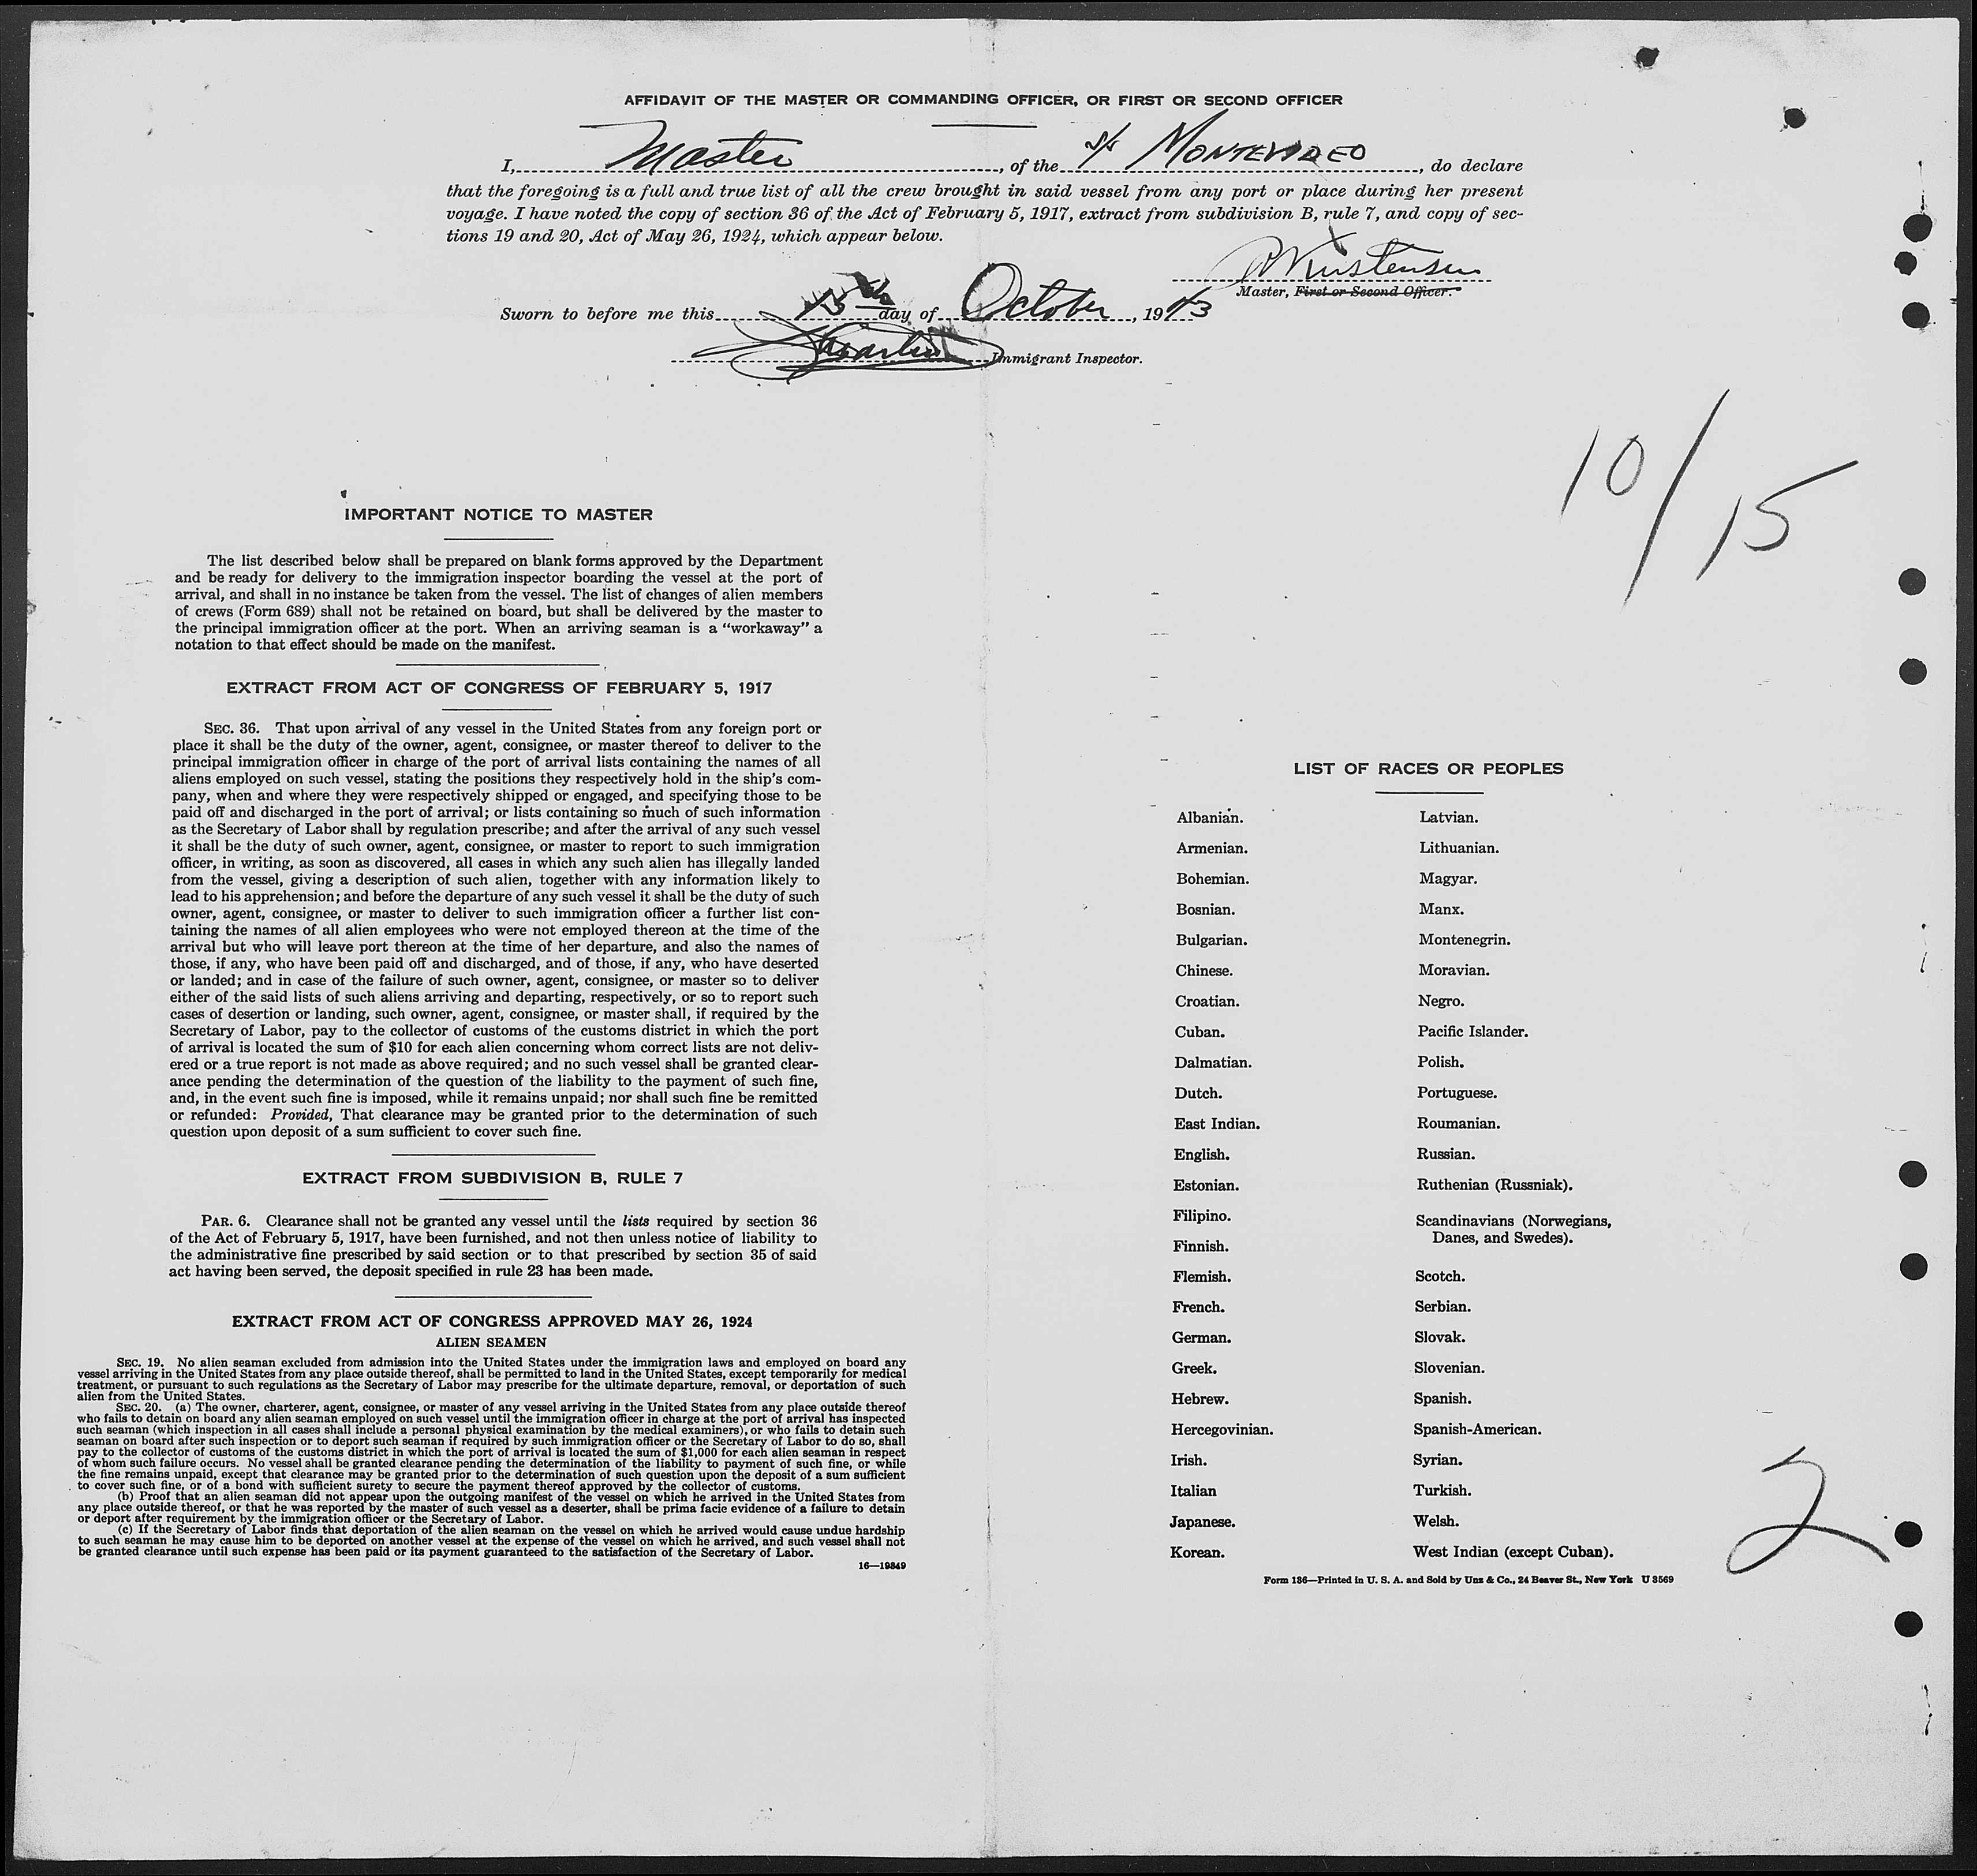 AFFIDAVIT OF THE MASTER OR COMMANDING OFFICER, OR FIRST OR SECOND OFFICER
I, Master, of the S/S MONTEVIDEO, do declare
that the foregoing is a full and true list of all the crew brought in said vessel from any port or place during her present
voyage. I have noted the copy of section 36 of the Act of February 5, 1917, extract from subdivision B, rule 7, and copy of sec-
tions 19 and 20, Act of May 26, 1924, which appear below.
Master, First or Second Officer.
Sworn to before me this 15th day of October, 1943
Immigrant Inspector.
10/15
IMPORTANT NOTICE TO MASTER
The list described below shall be prepared on blank forms approved by the Department
and be ready for delivery to the immigration inspector boarding the vessel at the port of
arrival, and shall in no instance be taken from the vessel. The list of changes of alien members
of crews (Form 689) shall not be retained on board, but shall be delivered by the master to
the principal immigration officer at the port. When an arriving seaman is a "workaway" a
notation to that effect should be made on the manifest.
EXTRACT FROM ACT OF CONGRESS OF FEBRUARY 5, 1917
SEC. 36. That upon arrival of any vessel in the United States from any foreign port or
place it shall be the duty of the owner, agent, consignee, or master thereof to deliver to the
principal immigration officer in charge of the port of arrival lists containing the names of all
aliens employed on such vessel, stating the positions they respectively hold in the ship's com-
pany, when and where they were respectively shipped or engaged, and specifying those to be
paid off and discharged in the port of arrival; or lists containing so much of such information
as the Secretary of Labor shall by regulation prescribe; and after the arrival of any such vessel
it shall be the duty of such owner, agent, consignee, or master to report to such immigration
officer, in writing, as soon as discovered, all cases in which any such alien has illegally landed
from the vessel, giving a description of such alien, together with any information likely to
lead to his apprehension; and before the departure of any such vessel it shall be the duty of such
owner, agent, consignee, or master to deliver to such immigration officer a further list con-
taining the names of all alien employees who were not employed thereon at the time of the
arrival but who will leave port thereon at the time of her departure, and also the names of
those, if any, who have been paid off and discharged, and of those, if any, who have deserted
or landed; and in case of the failure of such owner, agent, consignee, or master so to deliver
either of the said lists of such aliens arriving and departing, respectively, or so to report such
cases of desertion or landing, such owner, agent, consignee, or master shall, if required by the
Secretary of Labor, pay to the collector of customs of the customs district in which the port
of arrival is located the sum of $10 for each alien concerning whom correct lists are not deliv-
ered or a true report is not made as above required; and no such vessel shall be granted clear-
ance pending the determination of the question of the liability to the payment of such fine,
and, in the event such fine is imposed, while it remains unpaid; nor shall such fine be remitted
or refunded: Provided, That clearance may be granted prior to the determination of such
question upon deposit of a sum sufficient to cover such fine.
EXTRACT FROM SUBDIVISION B, RULE 7
PAR. 6. Clearance shall not be granted any vessel until the lists required by section 36
of the Act of February 5, 1917, have been furnished, and not then unless notice of liability to
the administrative fine prescribed by said section or to that prescribed by section 35 of said
act having been served, the deposit specified in rule 23 has been made.
EXTRACT FROM ACT OF CONGRESS APPROVED MAY 26, 1924
ALIEN SEAMEN
SEC. 19. No alien seaman excluded from admission into the United States under the immigration laws and employed on board any
vessel arriving in the United States from any place outside thereof, shall be permitted to land in the United States, except temporarily for medical
treatment, or pursuant to such regulations as the Secretary of Labor may prescribe for the ultimate departure, removal, or deportation of such
alien from the United States.
SEC. 20. (a) The owner, charterer, agent, consignee, or master of any vessel arriving in the United States from any place outside thereof
who fails to detain on board any alien seaman employed on such vessel until the immigration officer in charge at the port of arrival has inspected
such seaman (which inspection in all cases shall include a personal physical examination by the medical examiners), or who fails to detain such
seaman on board after such inspection or to deport such seaman if required by such immigration officer or the Secretary of Labor to do so, shall
pay to the collector of customs of the customs district in which the port of arrival is located the sum of $1,000 for each alien seaman in respect
of whom such failure occurs. No vessel shall be granted clearance pending the determination of the liability to payment of such fine, or while
the fine remains unpaid, except that clearance may be granted prior to the determination of such question upon the deposit of a sum sufficient
to cover such fine, or of a bond with sufficient surety to secure the payment thereof approved by the collector of customs.
(b) Proof that an alien seaman did not appear upon the outgoing manifest of the vessel on which he arrived in the United States from
any place outside thereof, or that he was reported by the master of such vessel as a deserter, shall be prima facie evidence of a failure to detain
or deport after requirement by the immigration officer or the Secretary of Labor.
(c) If the Secretary of Labor finds that deportation of the alien seaman on the vessel on which he arrived would cause undue hardship
to such seaman he may cause him to be deported on another vessel at the expense of the vessel on which he arrived, and such vessel shall not
be granted clearance until such expense has been paid or its payment guaranteed to the satisfaction of the Secretary of Labor.
16—19849
LIST OF RACES OR PEOPLES
Albanian.
Armenian.
Bohemian.
Bosnian.
Bulgarian.
Chinese.
Croatian.
Cuban.
Dalmatian.
Dutch.
East Indian.
English.
Estonian.
Filipino.
Finnish.
Flemish.
French.
German.
Greek.
Hebrew.
Hercegovinian.
Irish.
Italian
Japanese.
Korean.
Latvian.
Lithuanian.
Magyar.
Manx.
Montenegrin.
Moravian.
Negro.
Pacific Islander.
Polish.
Portuguese.
Roumanian.
Russian.
Ruthenian (Russniak).
Scandinavians (Norwegians,
Danes, and Swedes).
Scotch.
Serbian.
Slovak.
Slovenian.
Spanish.
Spanish-American.
Syrian.
Turkish.
Welsh.
West Indian (except Cuban).
2
Form 136—Printed in U. S. A. and Sold by Unz & Co., 24 Beaver St., New York U 3569